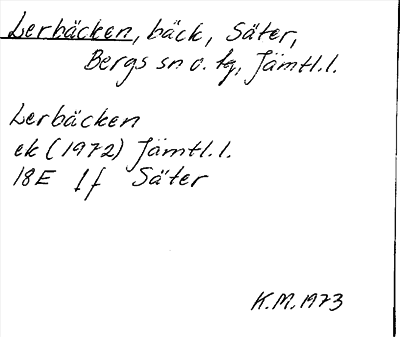 Lerbäcken, bäck, Säter,
Bergs sn o. tg, Jämtl.l.
Lerbäcken
ek (1972) Jämtl.l.
18E 1f Säter
K.M. 1973